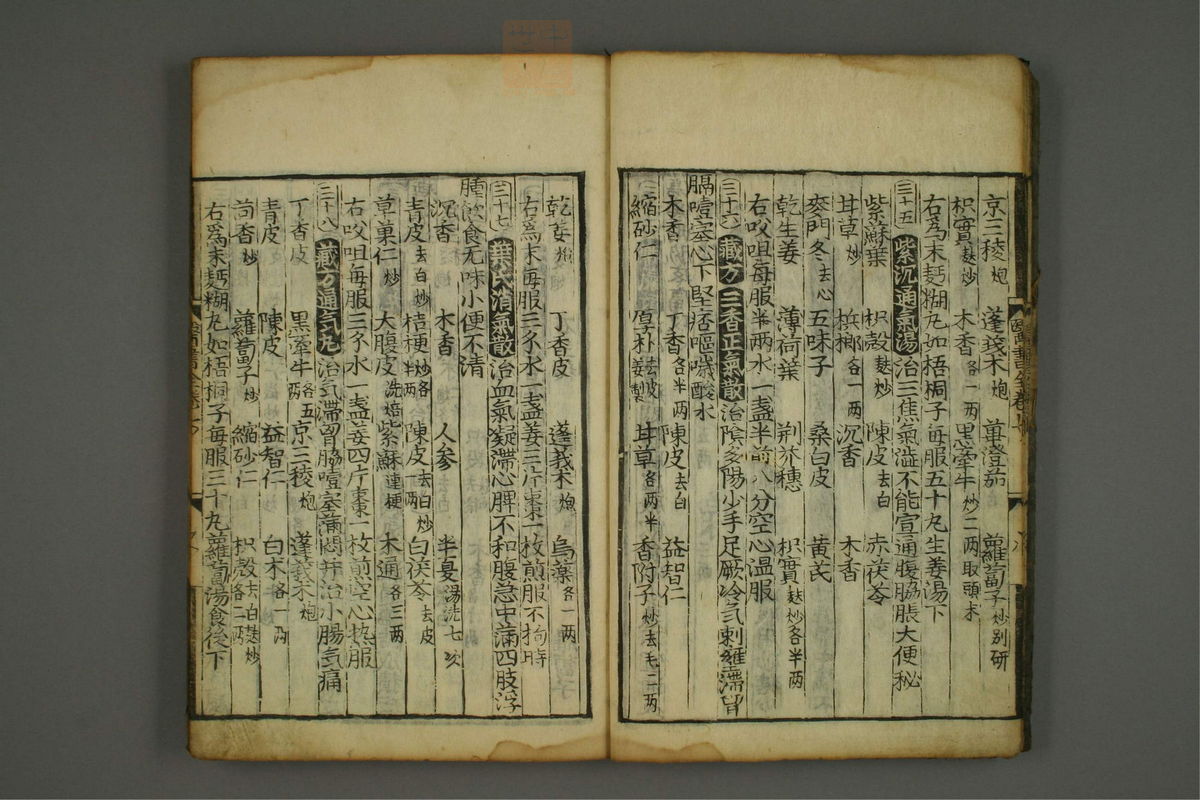 京三稜炮 蓬莪朮炮 蓽澄茄 蘿蔔子炒别研
枳實麩炒 木香各一两 黒牽牛炒二两取頭末
右爲末麪糊丸如梧桐子每服五十丸生姜湯下
三十五 紫沉通氣湯 治三焦氣澁不能宣通腹脇脹大便秘
紫蘇葉 枳殼麩炒 陳皮去白 赤茯苓
甘草炒 梹榔各一两 沉香 木香
麥門冬去心 五味子 桑白皮 黄芪
乾生姜 薄荷葉 荆芥穗 枳實麩炒各半两
右㕮咀每服半两水一盞半煎八分空心温服
三十六 藏方三香正氣散 治陰多陽少手足厥冷气刺雍滯胷
膈噎塞心下堅痞嘔噦酸水
木香 丁香各半两 陳皮去白 益智仁
縮砂仁 厚朴去皮姜製 甘草各两半 香附子炒去毛二两
乾姜炮 丁香皮 蓬莪朮炮 烏藥各一两
右爲末每服三䤋水一盞姜三片棗一枚煎服不拘時
三十七 葉氏消氣散 治血氣凝滯心脾不和腹急中滿四肢浮
腫飲食无味小便不清
沉香 木香 人參 半夏湯洗七次
青皮去白炒 桔梗炒各半两 陳皮去白炒一两 白茯苓去皮
草菓仁炒 大腹皮洗焙 紫蘇連梗 木通各三两
右㕮咀每服三䤋水一盞姜四片棗一枚煎空心热服
三十八 藏方通气丸 治气滯胷脇噎塞滿悶并治小腸气痛
丁香皮 黒牽牛各五两 京三稜炮 蓬莪朮炮
青皮 陳皮 益智仁 白朮各一两
茴香炒 蘿蔔子炒 縮砂仁 枳殼去白麸炒各二两
右爲末麪糊丸如梧桐子每服三十丸蘿蔔湯食後下